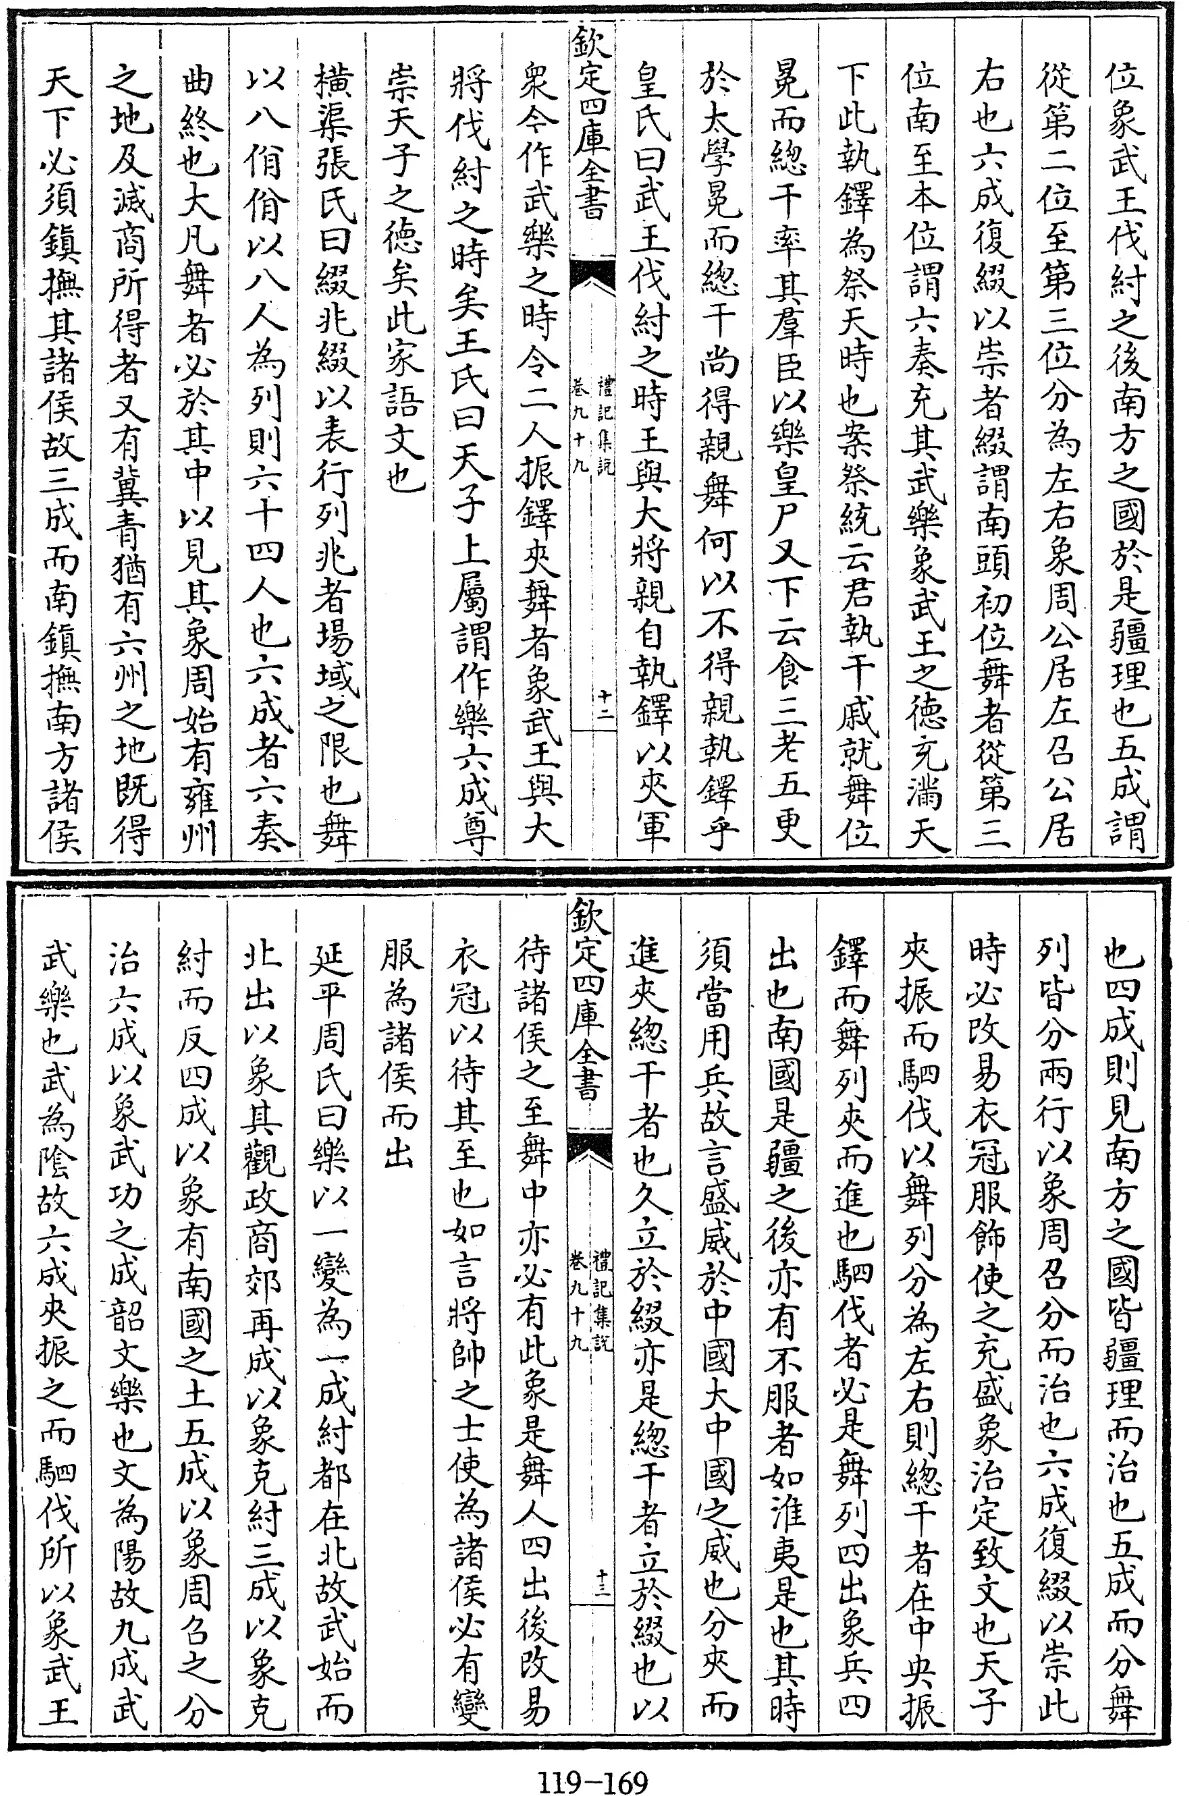 位象武王伐紂之後南方之國於是疆理也五成謂
從第二位至第三位分為左右象周公居左召公居
右也六成復綴以崇者綴謂南頭初位舞者從第三
位南至本位謂六奏充其武樂象武王之德充滿天
下此執鐸為祭天時也案祭統云君執干戚就舞位
冕而總干率其羣臣以樂皇尸又下云食三老五更
於太學冕而總干尚得親舞何以不得親執鐸乎
皇氏曰武王伐紂之時王與大將親自執鐸以夾軍
欽定四庫全書
禮記集說
卷九十九
十二
衆今作武樂之時令二人振鐸夾舞者象武王與大
將伐紂之時矣王氏曰天子上屬謂作樂六成尊
崇天子之德矣此家語文也
橫渠張氏曰綴兆綴以表行列兆者場域之限也舞
以八佾佾以八人為列則六十四人也六成者六奏
曲終也大凡舞者必於其中以見其象周始有雍州
之地及滅商所得者又有冀青猶有六州之地既得
天下必須鎮撫其諸侯故三成而南鎮撫南方諸侯
也四成則見南方之國皆疆理而治也五成而分舞
列皆分兩行以象周召分而治也六成復綴以崇此
時必改易衣冠服飾使之充盛象治定致文也天子
夾振而駟伐以舞列分為左右則總干者在中央振
鐸而舞列夾而進也駟伐者必是舞列四出象兵四
出也南國是疆之後亦有不服者如淮夷是也其時
須當用兵故言盛威於中國大中國之威也分夾而
進夾總干者也久立於綴亦是總干者立於綴也以
欽定四庫全書
禮記集說
卷九十九
十三
待諸侯之至舞中亦必有此象是舞人四出後改易
衣冠以待其至也如言將帥之士使為諸侯必有變
服為諸侯而出
延平周氏曰樂以一變為一成紂都在北故武始而
北出以象其觀政商郊再成以象克紂三成以象克
紂而反四成以象有南國之土五成以象周召之分
治六成以象武功之成韶文樂也文為陽故九成武
武樂也武為陰故六成夾振之而駟伐所以象武王
119-169